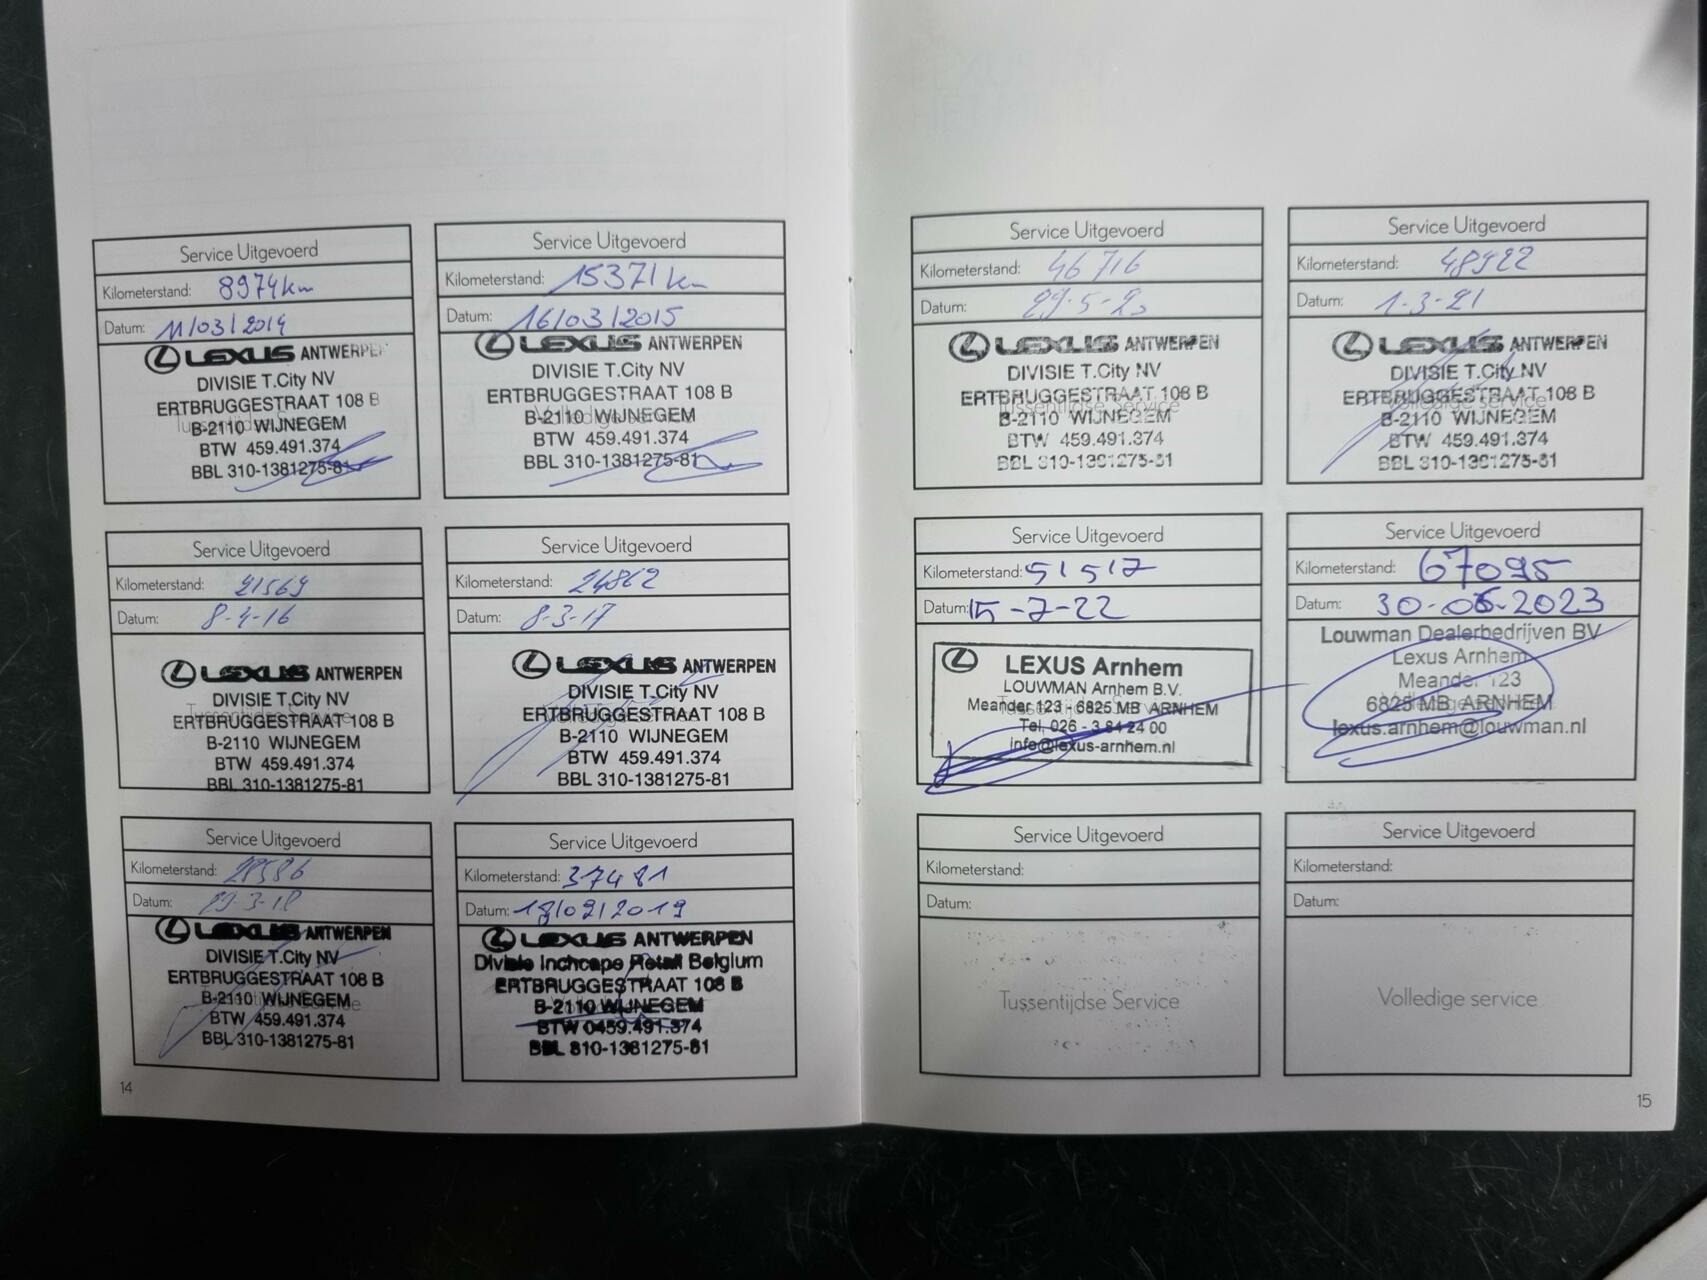 Service Uitgevoerd
Kilometerstand: 8974 km
Datum: 11/03/2014
LEXUS ANTWERPEN
DIVISIE T.City NV
ERTBRUGGESTRAAT 108 B
Tussentijdse Service
B-2110 WIJNEGEM
BTW 459.491.374
BBL 310-1381275-81
Service Uitgevoerd
Kilometerstand: 15371 km
Datum: 16/03/2015
LEXUS ANTWERPEN
DIVISIE T.City NV
ERTBRUGGESTRAAT 108 B
Volledige service
B-2110 WIJNEGEM
BTW 459.491.374
BBL 310-1381275-81
Service Uitgevoerd
Kilometerstand: 21569
Datum: 8-4-16
LEXUS ANTWERPEN
DIVISIE T.City NV
Tussentijdse Service
ERTBRUGGESTRAAT 108 B
B-2110 WIJNEGEM
BTW 459.491.374
BBL 310-1381275-81
Service Uitgevoerd
Kilometerstand: 24862
Datum: 8-3-17
LEXUS ANTWERPEN
DIVISIE T.City NV
ERTBRUGGESTRAAT 108 B
B-2110 WIJNEGEM
BTW 459.491.374
BBL 310-1381275-81
Service Uitgevoerd
Kilometerstand: 28586
Datum: 29-3-18
LEXUS ANTWERPEN
DIVISIE T.City NV
ERTBRUGGESTRAAT 108 B
B-2110 WIJNEGEM
Tussentijdse Service
BTW 459.491.374
BBL 310-1381275-81
Service Uitgevoerd
Kilometerstand: 37481
Datum: 18/02/2019
LEXUS ANTWERPEN
Divisie Inchcape Retail Belgium
ERTBRUGGESTRAAT 108 B
B-2110 WIJNEGEM
BTW 0459.491.374
BBL 310-1381275-81
14
Service Uitgevoerd
Kilometerstand: 46716
Datum: 29-5-20
LEXUS ANTWERPEN
DIVISIE T.City NV
ERTBRUGGESTRAAT 108 B
Tussentijdse Service
B-2110 WIJNEGEM
BTW 459.491.374
BBL 310-1381275-81
Service Uitgevoerd
Kilometerstand: 48922
Datum: 1-3-21
LEXUS ANTWERPEN
DIVISIE T.City NV
ERTBRUGGESTRAAT 108 B
Volledige service
B-2110 WIJNEGEM
BTW 459.491.374
BBL 310-1381275-81
Service Uitgevoerd
Kilometerstand: 51517
Datum: 15-7-22
LEXUS Arnhem
LOUWMAN Arnhem B.V.
Meander 123 - 6825 MB ARNHEM
Tel. 026 - 3 84 24 00
info@lexus-arnhem.nl
Service Uitgevoerd
Kilometerstand: 67095
Datum: 30-06-2023
Louwman Dealerbedrijven BV
Lexus Arnhem
Meander 123
6825 MB ARNHEM
lexus.arnhem@louwman.nl
Service Uitgevoerd
Kilometerstand:
Datum:
Tussentijdse Service
Service Uitgevoerd
Kilometerstand:
Datum:
Volledige service
15